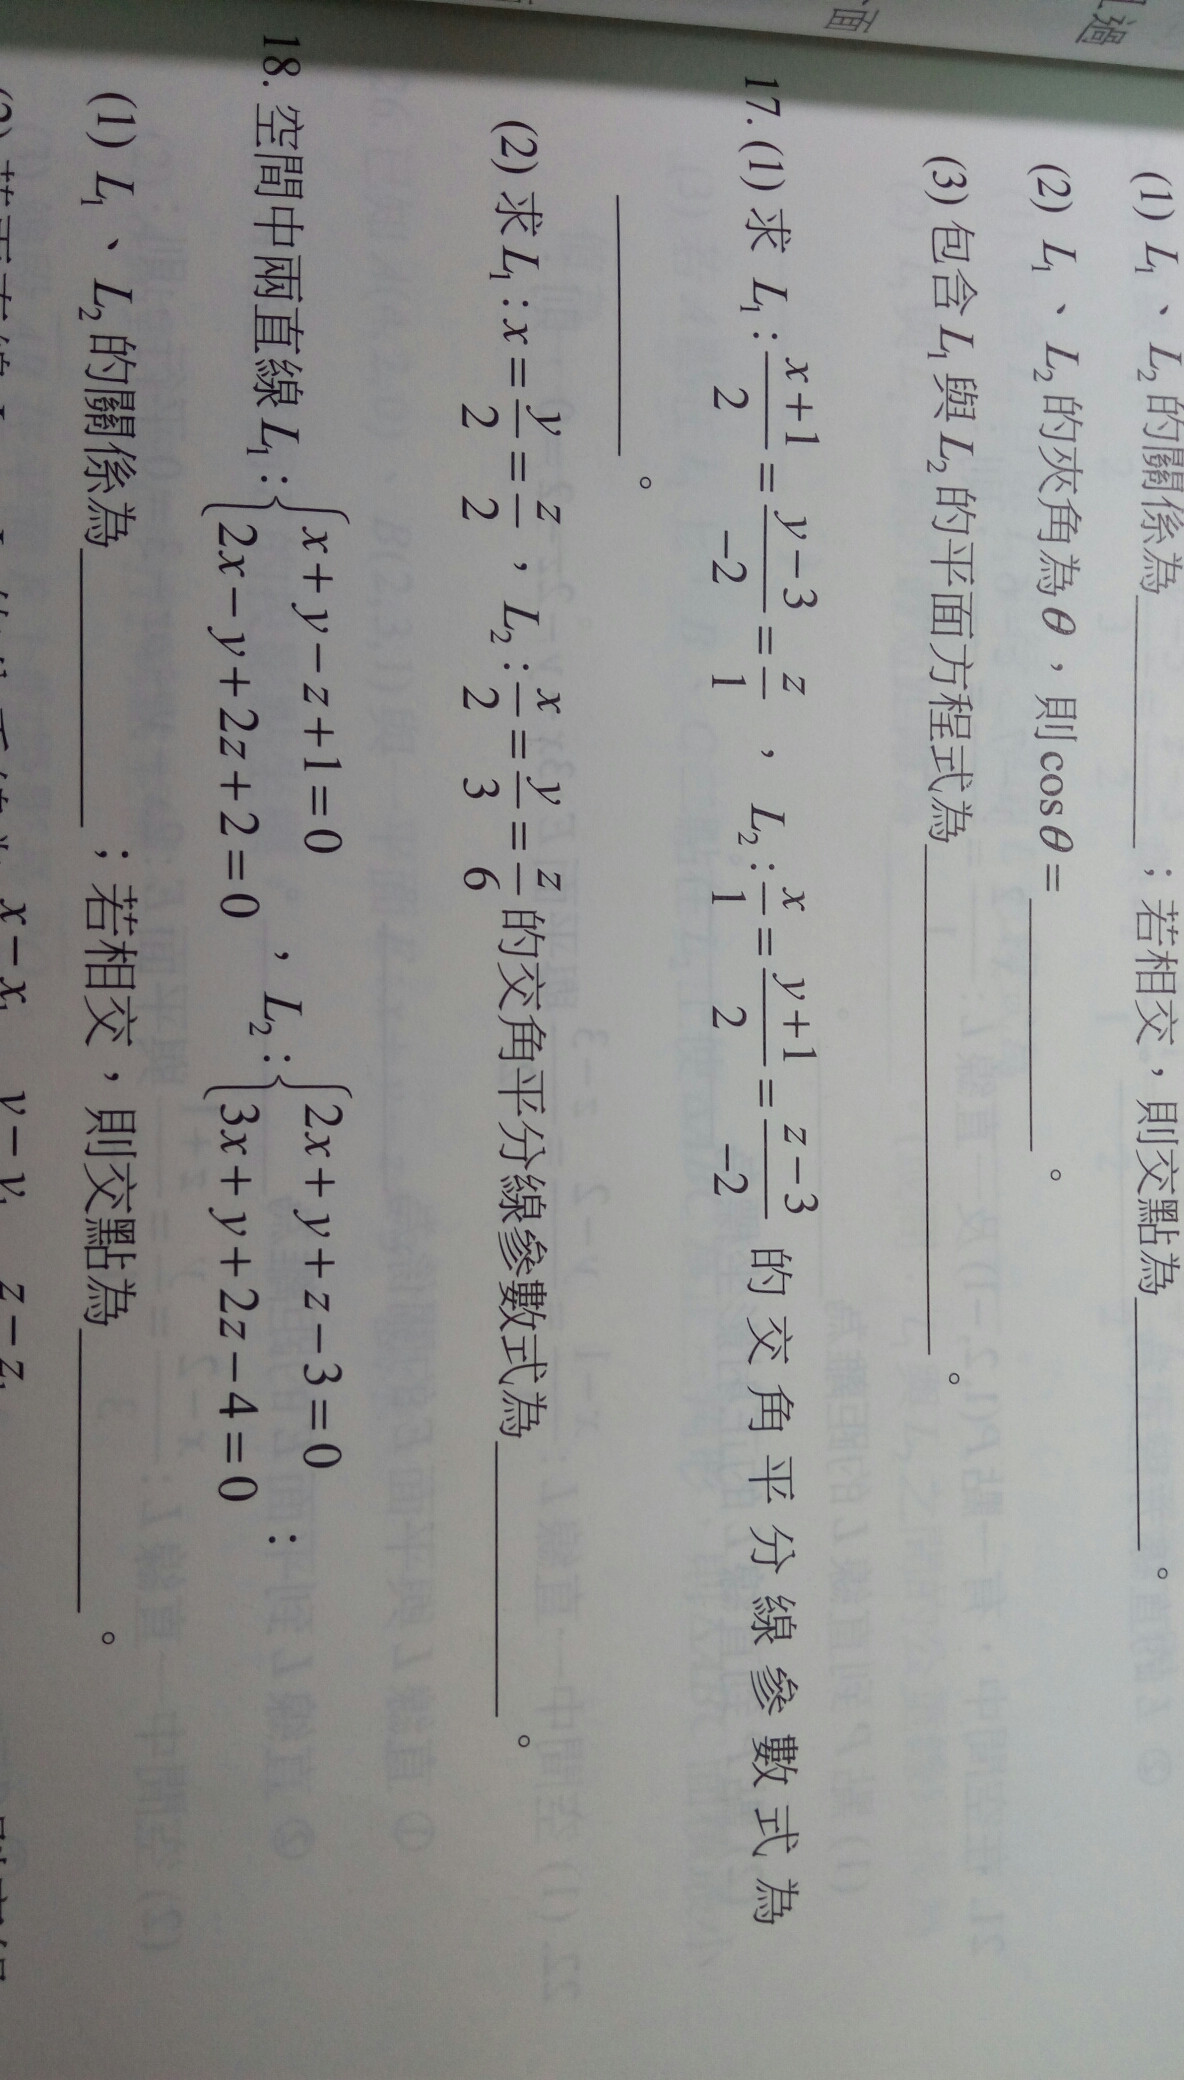 (1) L₁、L₂的關係為＿＿＿＿；若相交，則交點為＿＿＿＿。
(2) L₁、L₂的夾角為θ，則cosθ=＿＿＿＿。
(3) 包含L₁與L₂的平面方程式為＿＿＿＿＿＿＿＿。
17. (1) 求 L₁：(x+1)/2=(y−3)/−2=z/1，L₂：x/1=(y+1)/2=(z−3)/−2 的交角平分線參數式為
＿＿＿＿。
(2) 求L₁：x=y/2=z/2，L₂：x/2=y/3=z/6的交角平分線參數式為＿＿＿＿。
18. 空間中兩直線L₁：{x+y−z+1=0, 2x−y+2z+2=0，L₂：{2x+y+z−3=0, 3x+y+2z−4=0：
(1) L₁、L₂的關係為＿＿＿＿；若相交，則交點為＿＿＿＿。